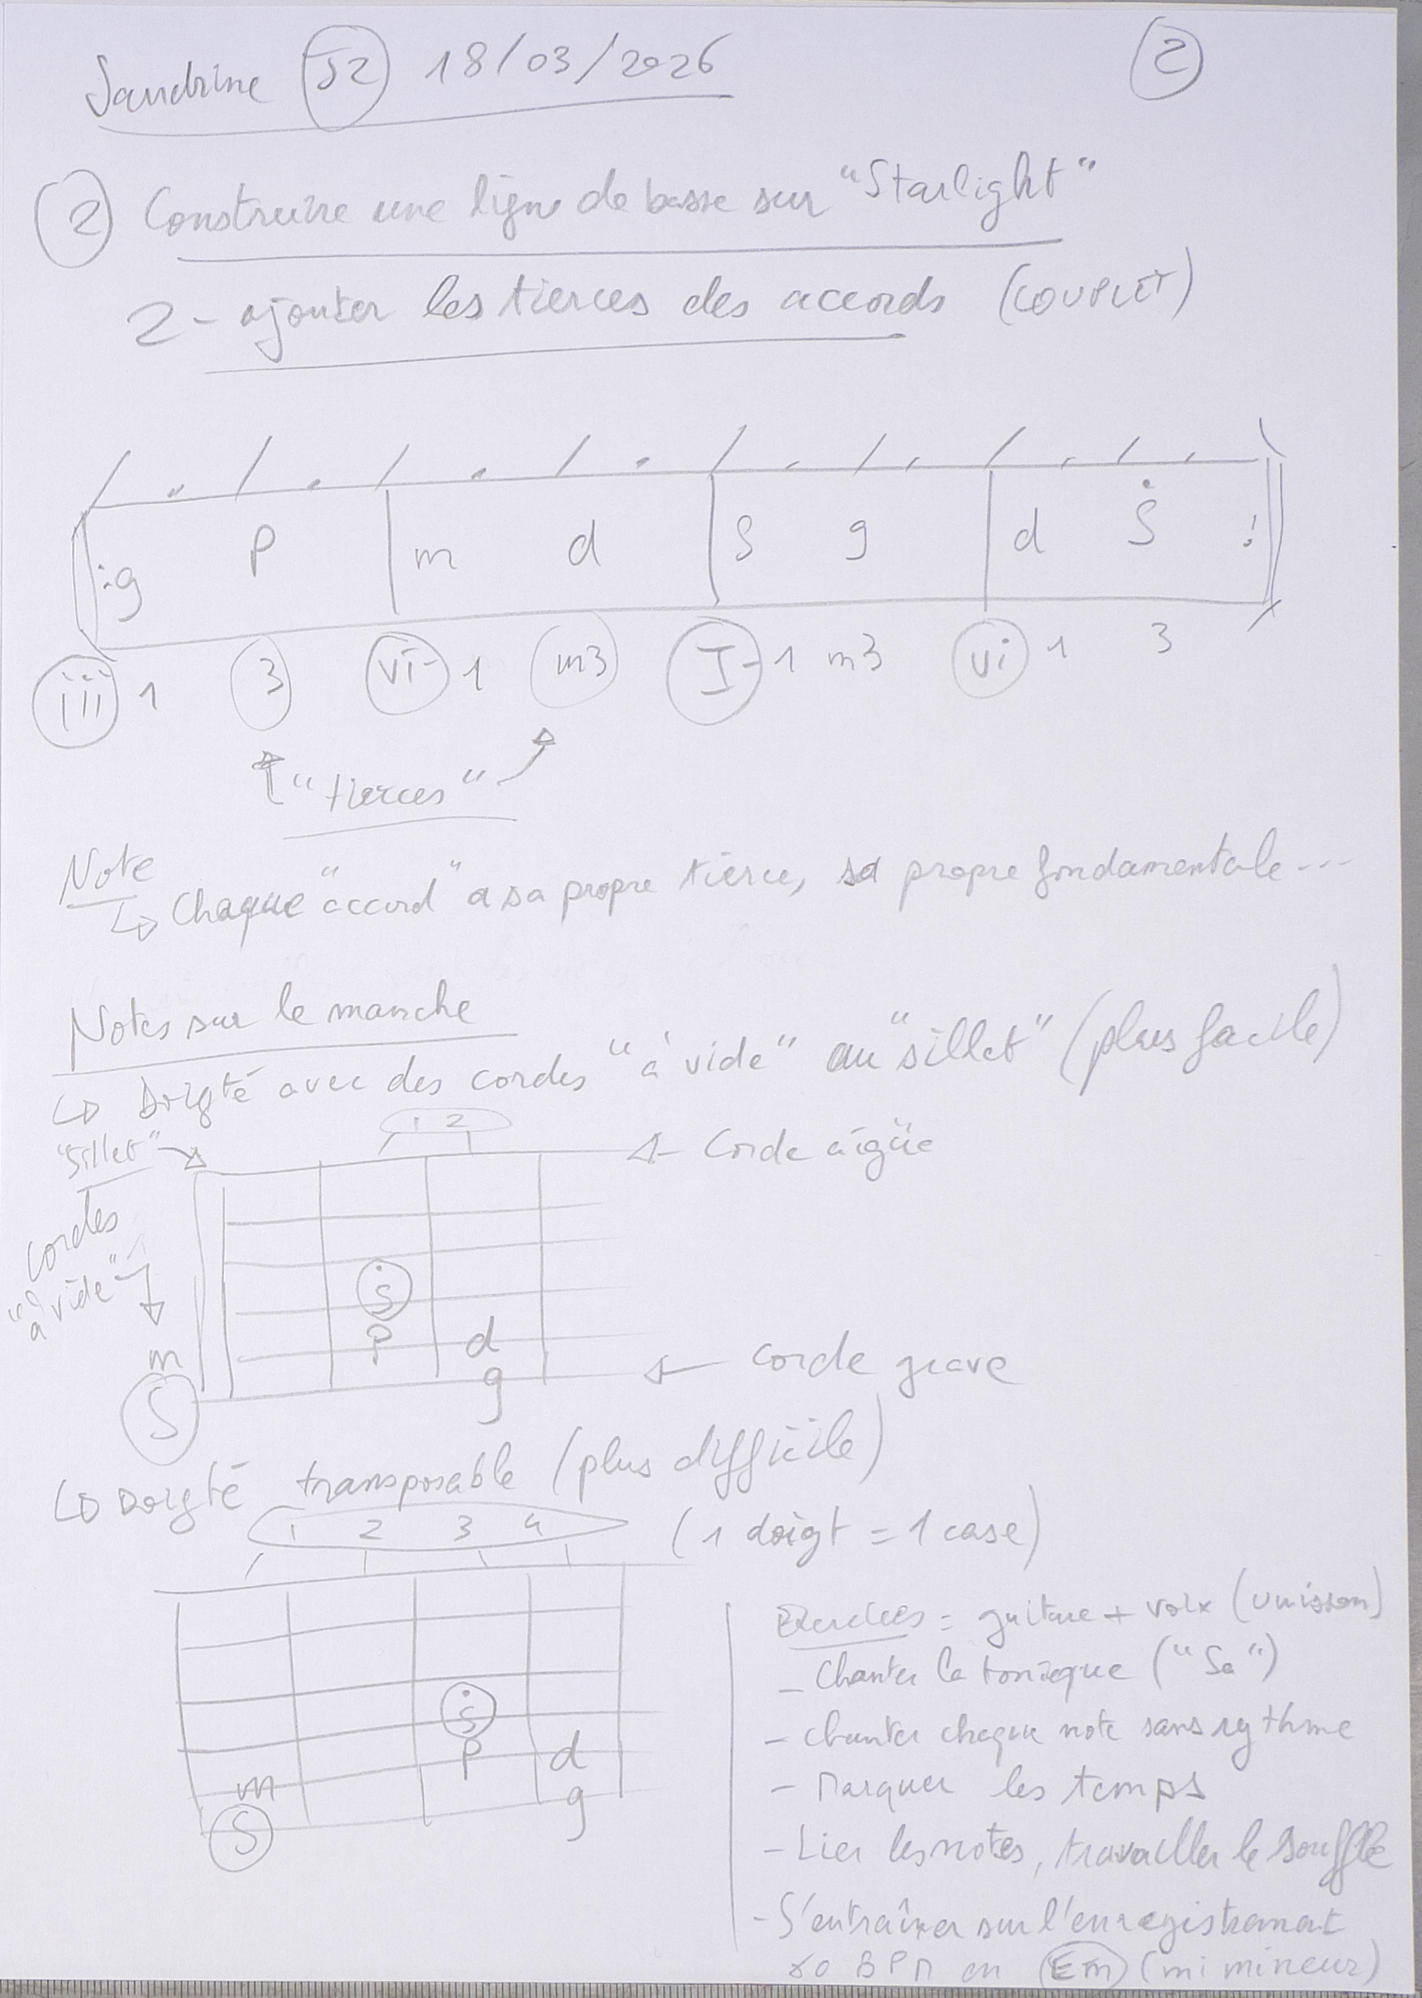 Sandrine S2 18/03/2026 2
2 Construire une ligne de basse sur "Starlight"
2 - ajouter les tierces des accords (COUPLET)
:g P m d S g d Ṡ :
iii 1 3 vi - 1 m3 I - 1 m3 vi 1 3
"tierces"
Note
↳ Chaque "accord" a sa propre tierce, sa propre fondamentale...
Notes sur le manche
↳ Doigté avec des cordes "à vide" au "sillet" (plus facile)
1 2
"Sillet" → ← Corde aigüe
cordes
"à vide"
ṡ
m P d
S g ← corde grave
↳ Doigté transposable (plus difficile)
1 2 3 4 (1 doigt = 1 case)
ṡ
m P d
S g
Exercices = guitare + voix (unisson)
- Chanter la tonique ("Sa")
- chanter chaque note sans rythme
- Marquer les temps
- Lier les notes, travailler le souffle
- S'entraîner sur l'enregistrement
BPM en Em (mi mineur)